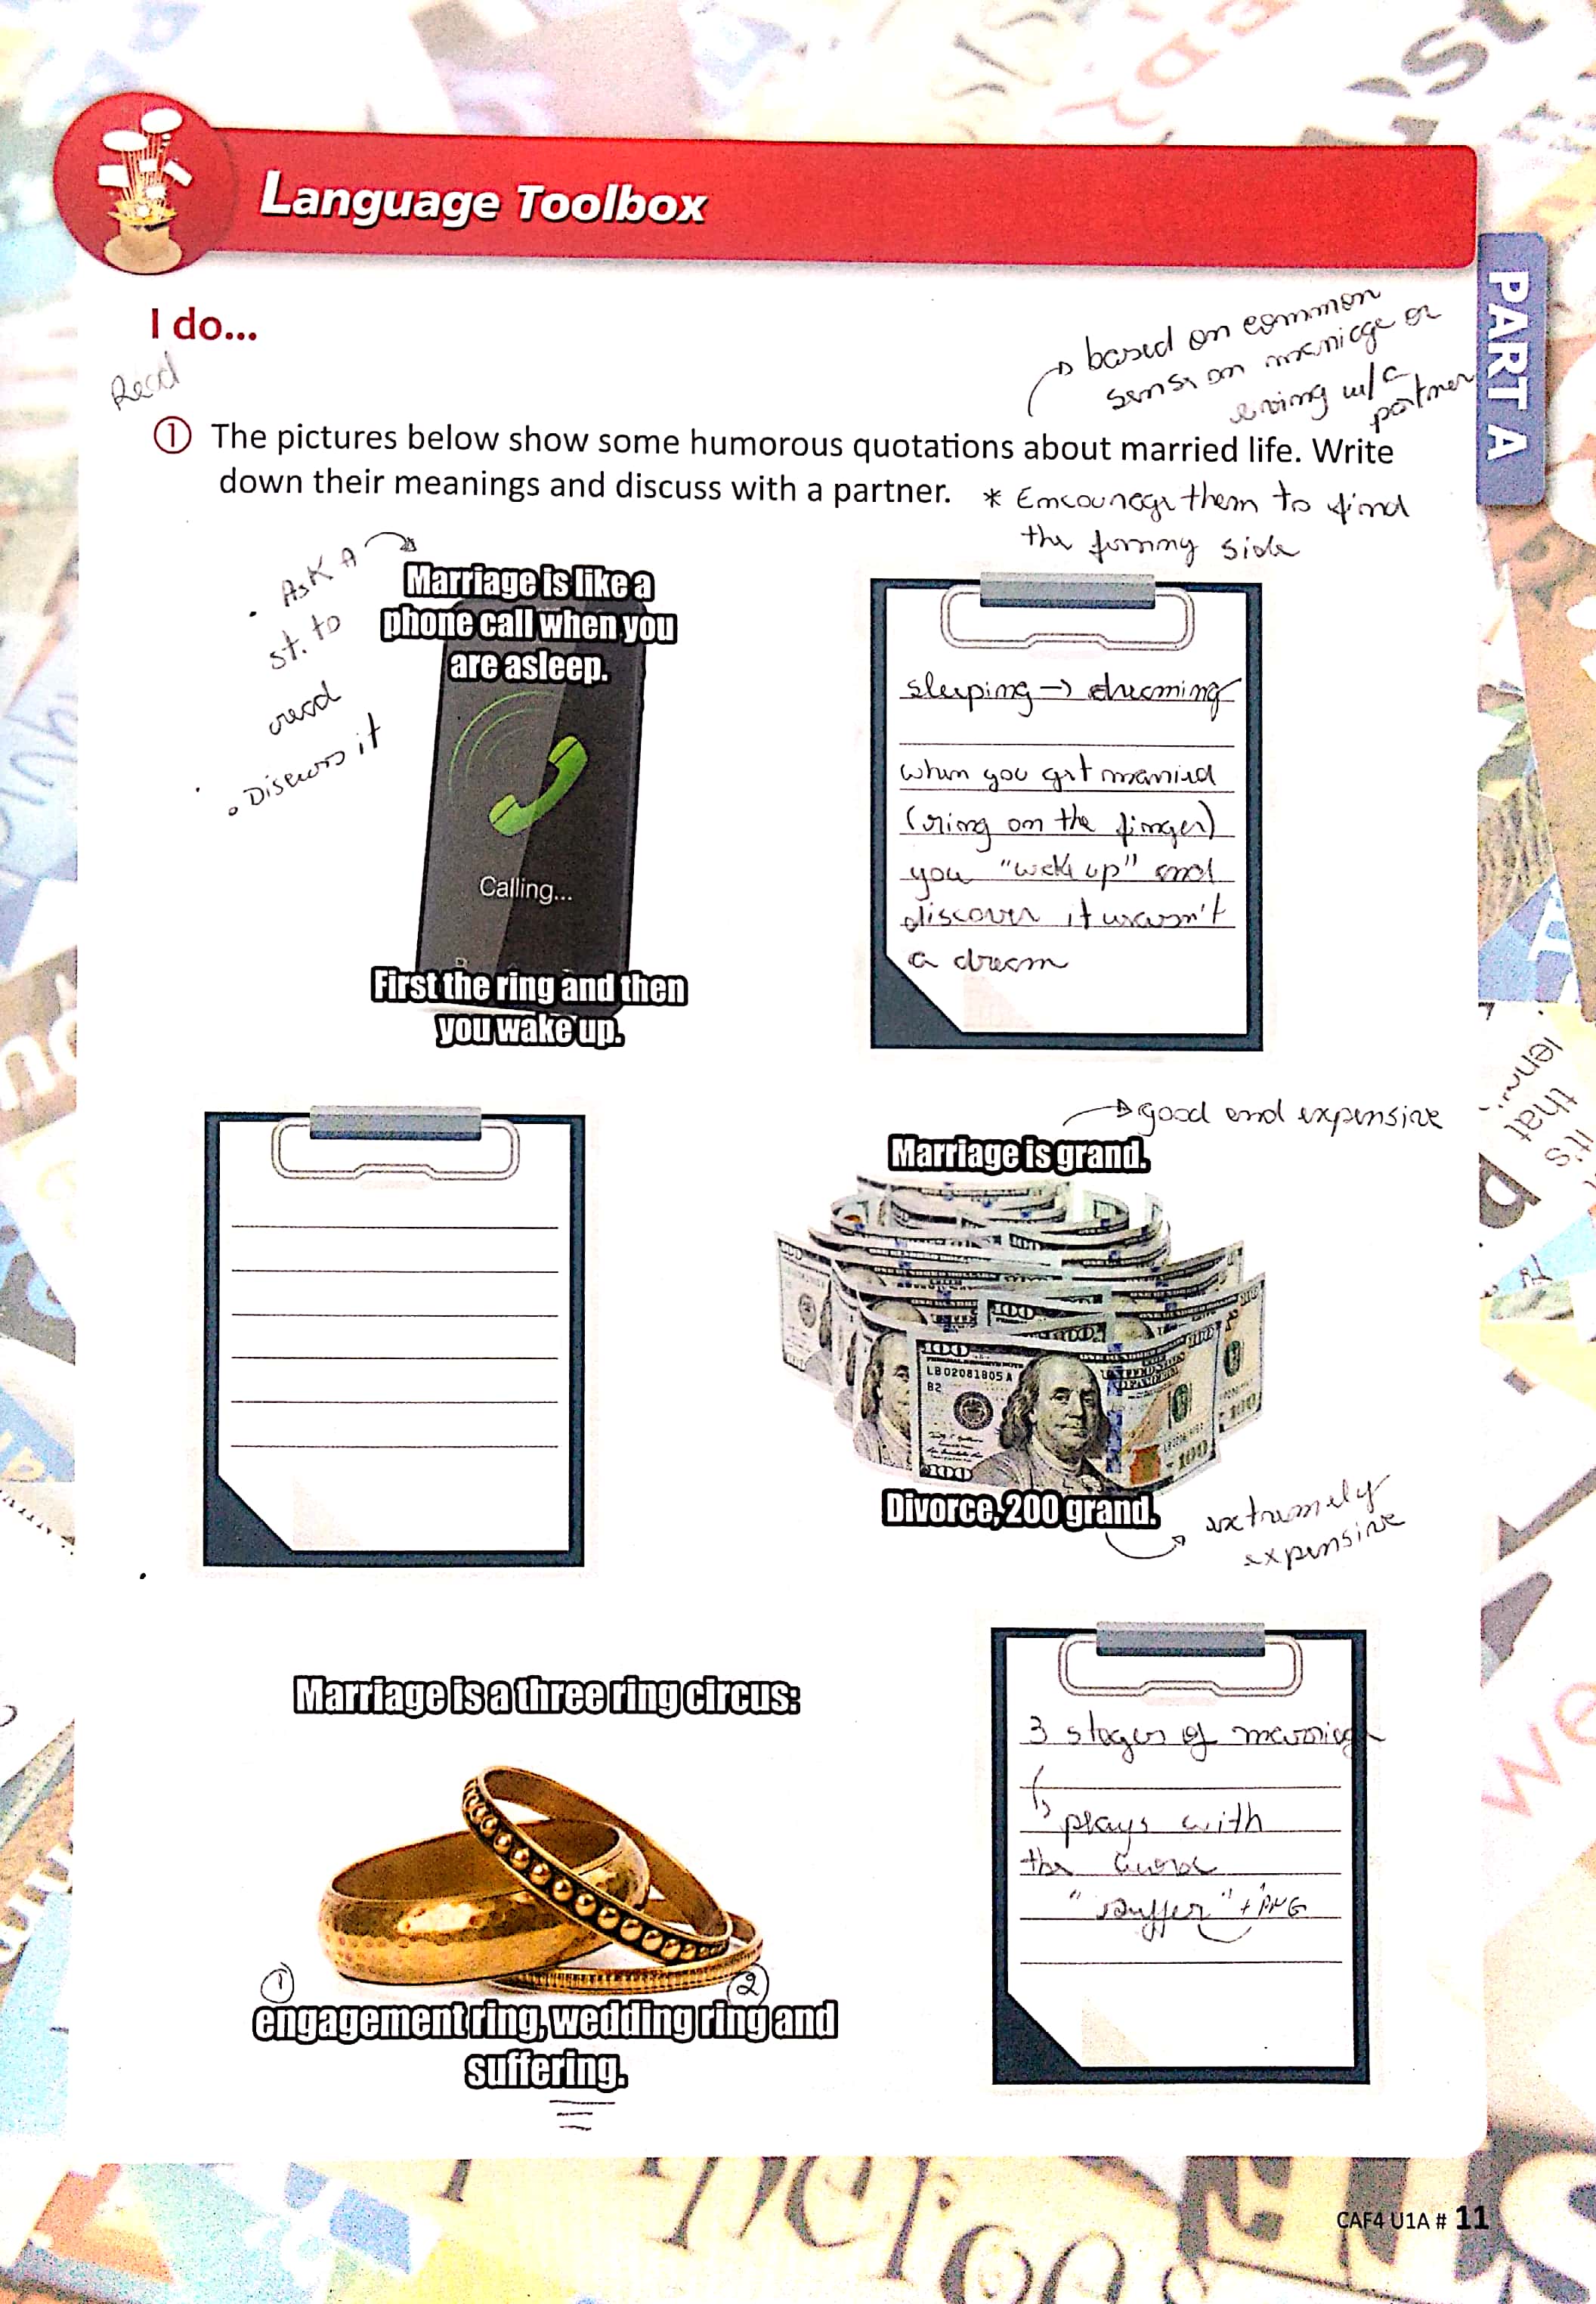 Language Toolbox
PART A
I do...
Read
based on common
sense on marriage or
living w/a
partner
① The pictures below show some humorous quotations about married life. Write
down their meanings and discuss with a partner.
* Encourage them to find
the funny side
• Ask A
st. to
read
• Discuss it
Marriage is like a
phone call when you
are asleep.
Calling...
First the ring and then
you wake up.
sleeping → dreaming
when you get married
(ring on the finger)
you "wake up" and
discover it wasn't
a dream
good and expensive
Marriage is grand.
100
LB02081805A
B2
100
Divorce, 200 grand.
extremely
expensive
Marriage is a three ring circus:
① ②
engagement ring, wedding ring and
suffering.
3 stages of marriage
plays with
the word
"suffer" + ING
CAF4 U1A # 11